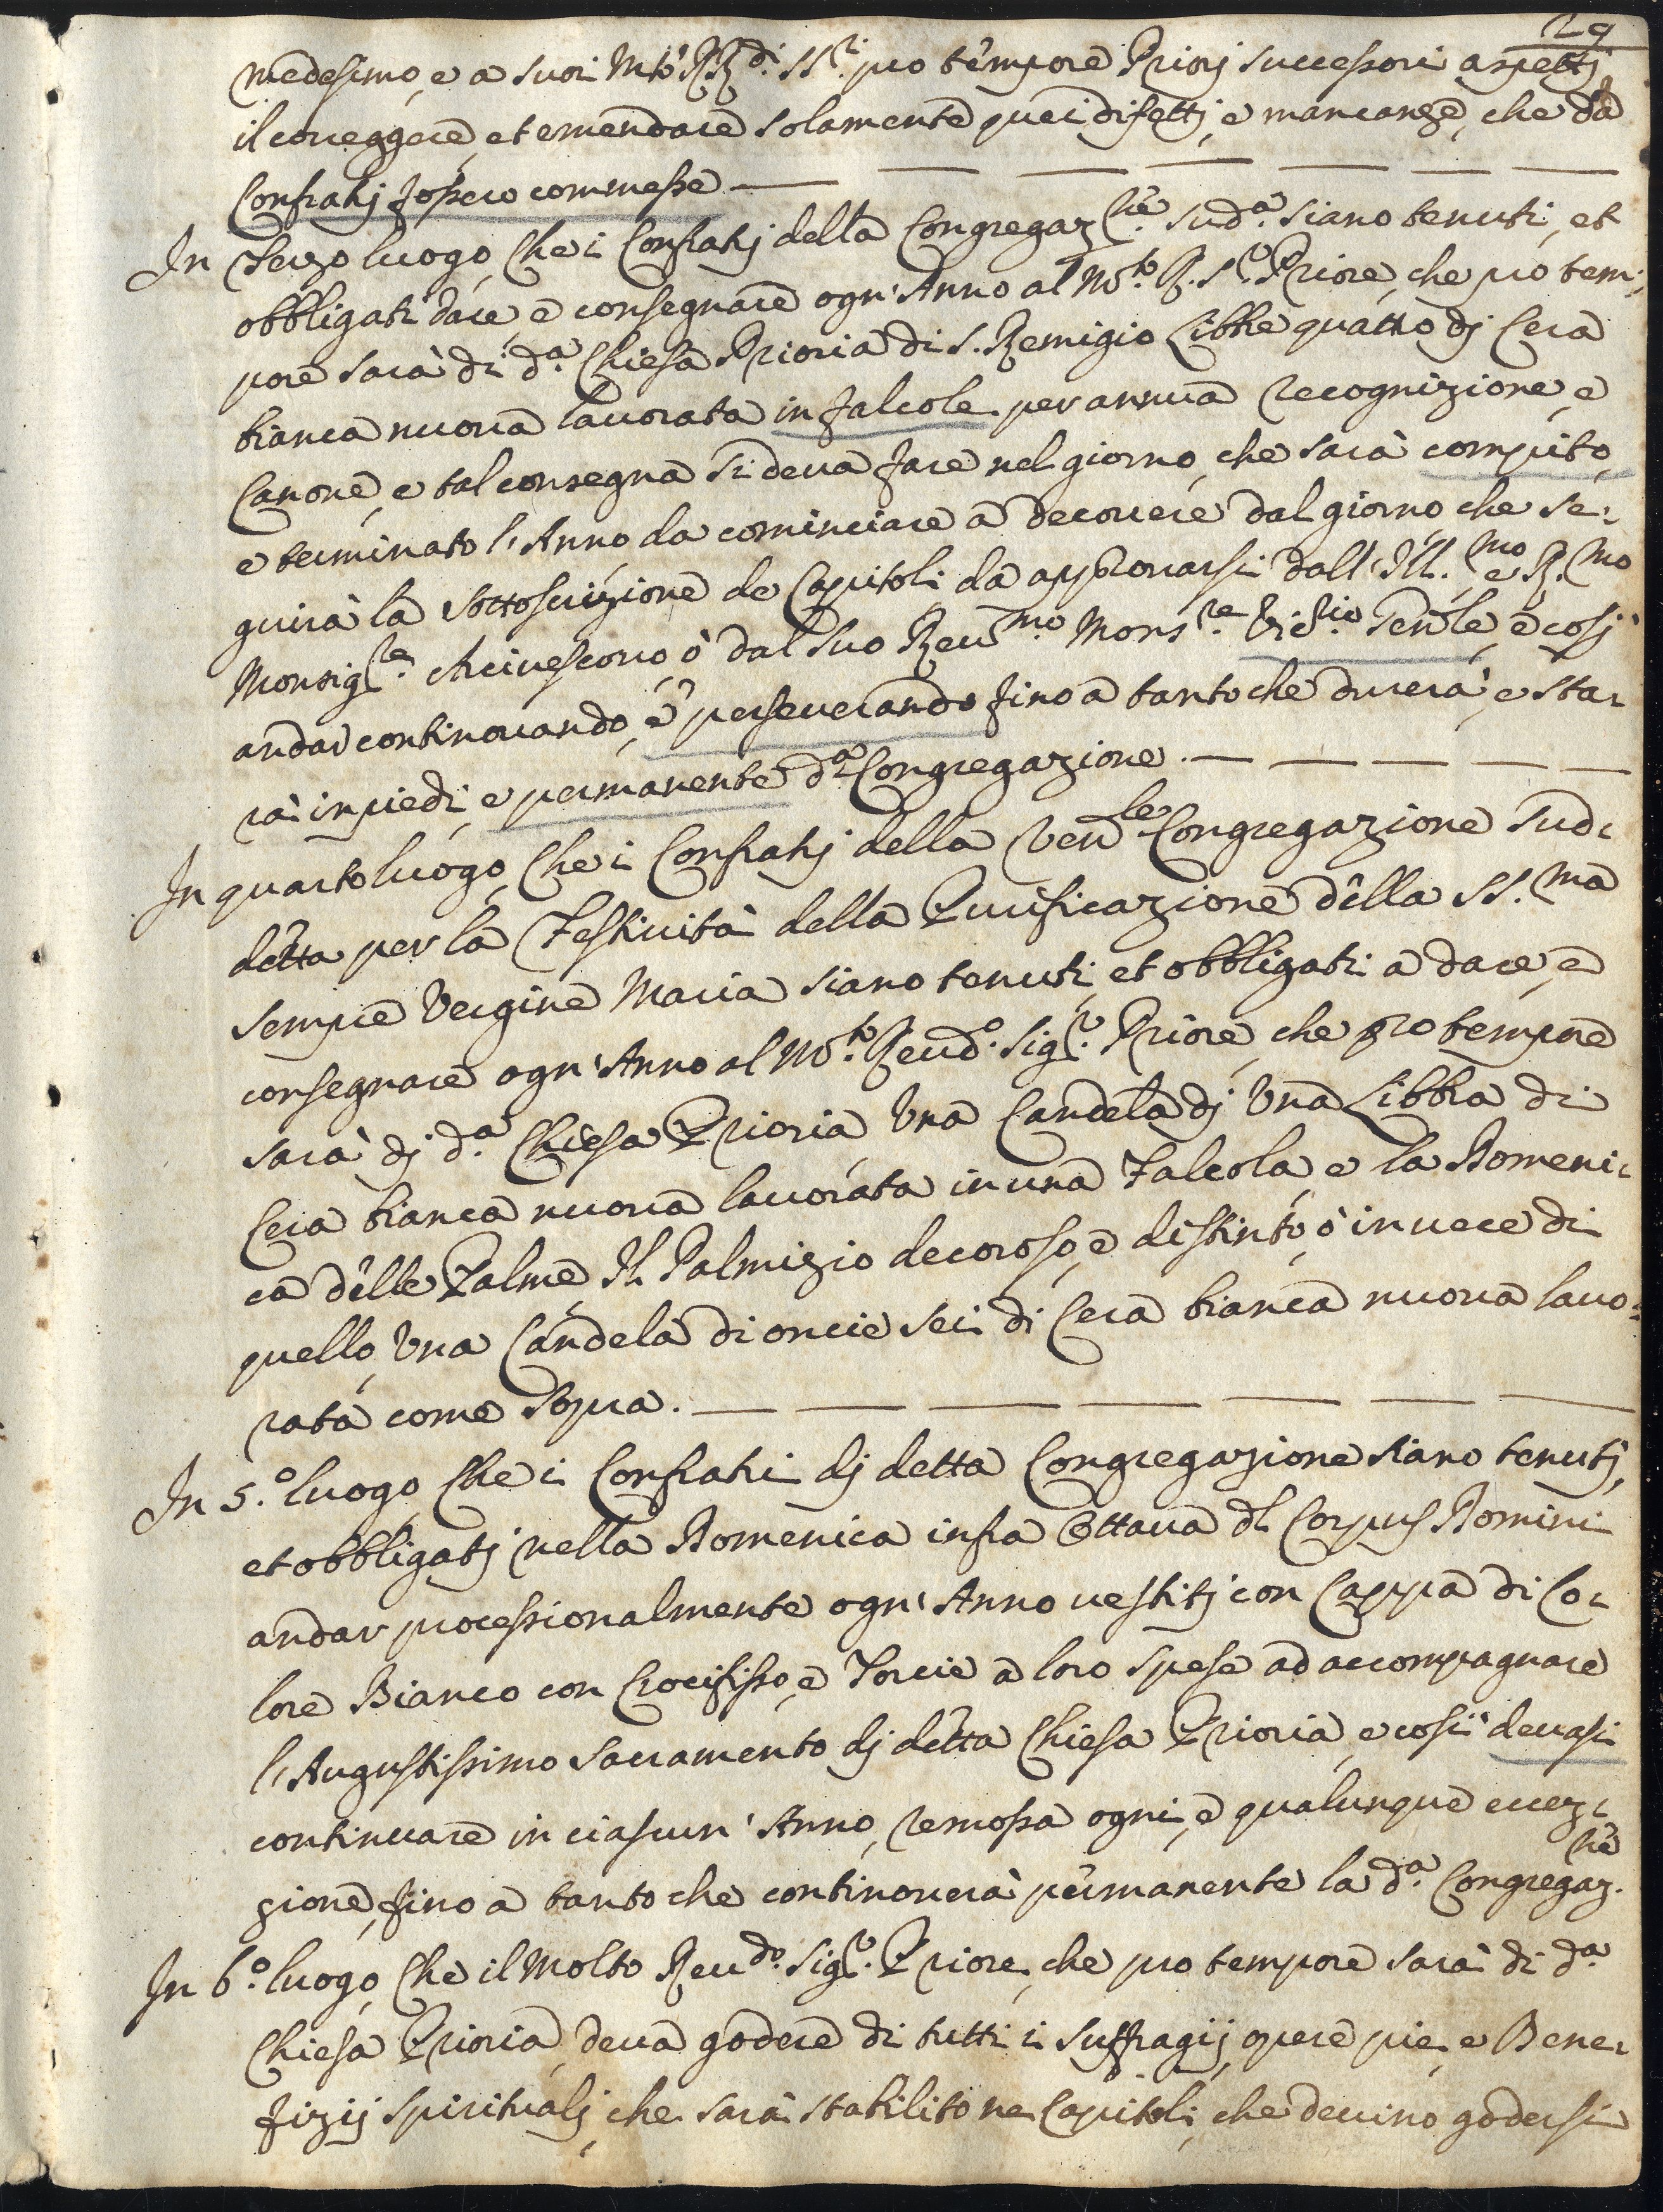 29
medesimo, e a suoi Mto' RR.di SS.ri pro tempore Priorj successori aspettj
il correggere, et emendare solamente quei difettj, e mancanze, che da
Confratj fossero commesse.
In Terzo luogo, Che i Confratj della Congregaz.ne sud.a siano tenuti, et
obbligati dare, e consegnare ogn' Anno al M.to R. S.re Priore, che pro tem:
pore sarà di d.a Chiesa Prioria di S. Remigio Libbre quattro dj Cera
bianca nuova lavorata in falcole per annua recognizione, e
Canone, e tal consegna si deva fare nel giorno, che sarà compito,
e terminato l'Anno da cominciare a decorrere dal giorno, che se:
guirà la sottoscrizione de Capitoli da approvarsi dall' Ill.mo e R.mo
Monsig.re Arcivescovo, ò dal suo Reu.mo Mons.re Vic.io Gen.le, e cosj
andar continouando, e perseuerando fino a tanto che durerà, e sta:
rà in piedi, e permanente d.a Congregazione.
In quarto luogo, Che i Confratj della Ven.le Congregazione sud:
detta per la Festiuità della Purificazione della SS.ma
sempre Vergine Maria siano tenuti, et obbligati a dare, e
consegnare ogn' Anno al M.to Reud.o Sig.r Priore, che pro tempore
sarà dj d.a Chiesa Prioria Una Candela dj Una Libbra di
Cera bianca nuova lauorata in una Falcola, e la Domeni:
ca delle Palme Il Palmizio decoroso, e distinto, ò in uece di
quello, Una Candela di oncie sei di Cera bianca nuoua lauo:
rata come sopra.
In 5.o luogo, Che i Confrati dj detta Congregazione siano tenutj,
et obbligatj nella Domenica infra Ottaua dl Corpus Domini
andar processionalmente ogn' Anno uestitj con Cappa di Co:
lore Bianco con Crocifisso, e Torcie a loro spese ad accompagnare
l'Augustissimo Sacramento dj detta Chiesa Prioria, e così deuasi
continuare in ciascun' Anno, remossa ogni, e qualunque eccez:
zione, fino a tanto che continouerà permanente la d.a Congregaz.ne
In 6.o luogo, Che il Molto Reu.do Sig.r Priore, che pro tempore sarà di d.a
Chiesa Prioria, deua godere di tutti i suffragij, opere pie, e Bene:
fizij spiritualj, che sarà stabilito ne Capitoli, che deuino godersi